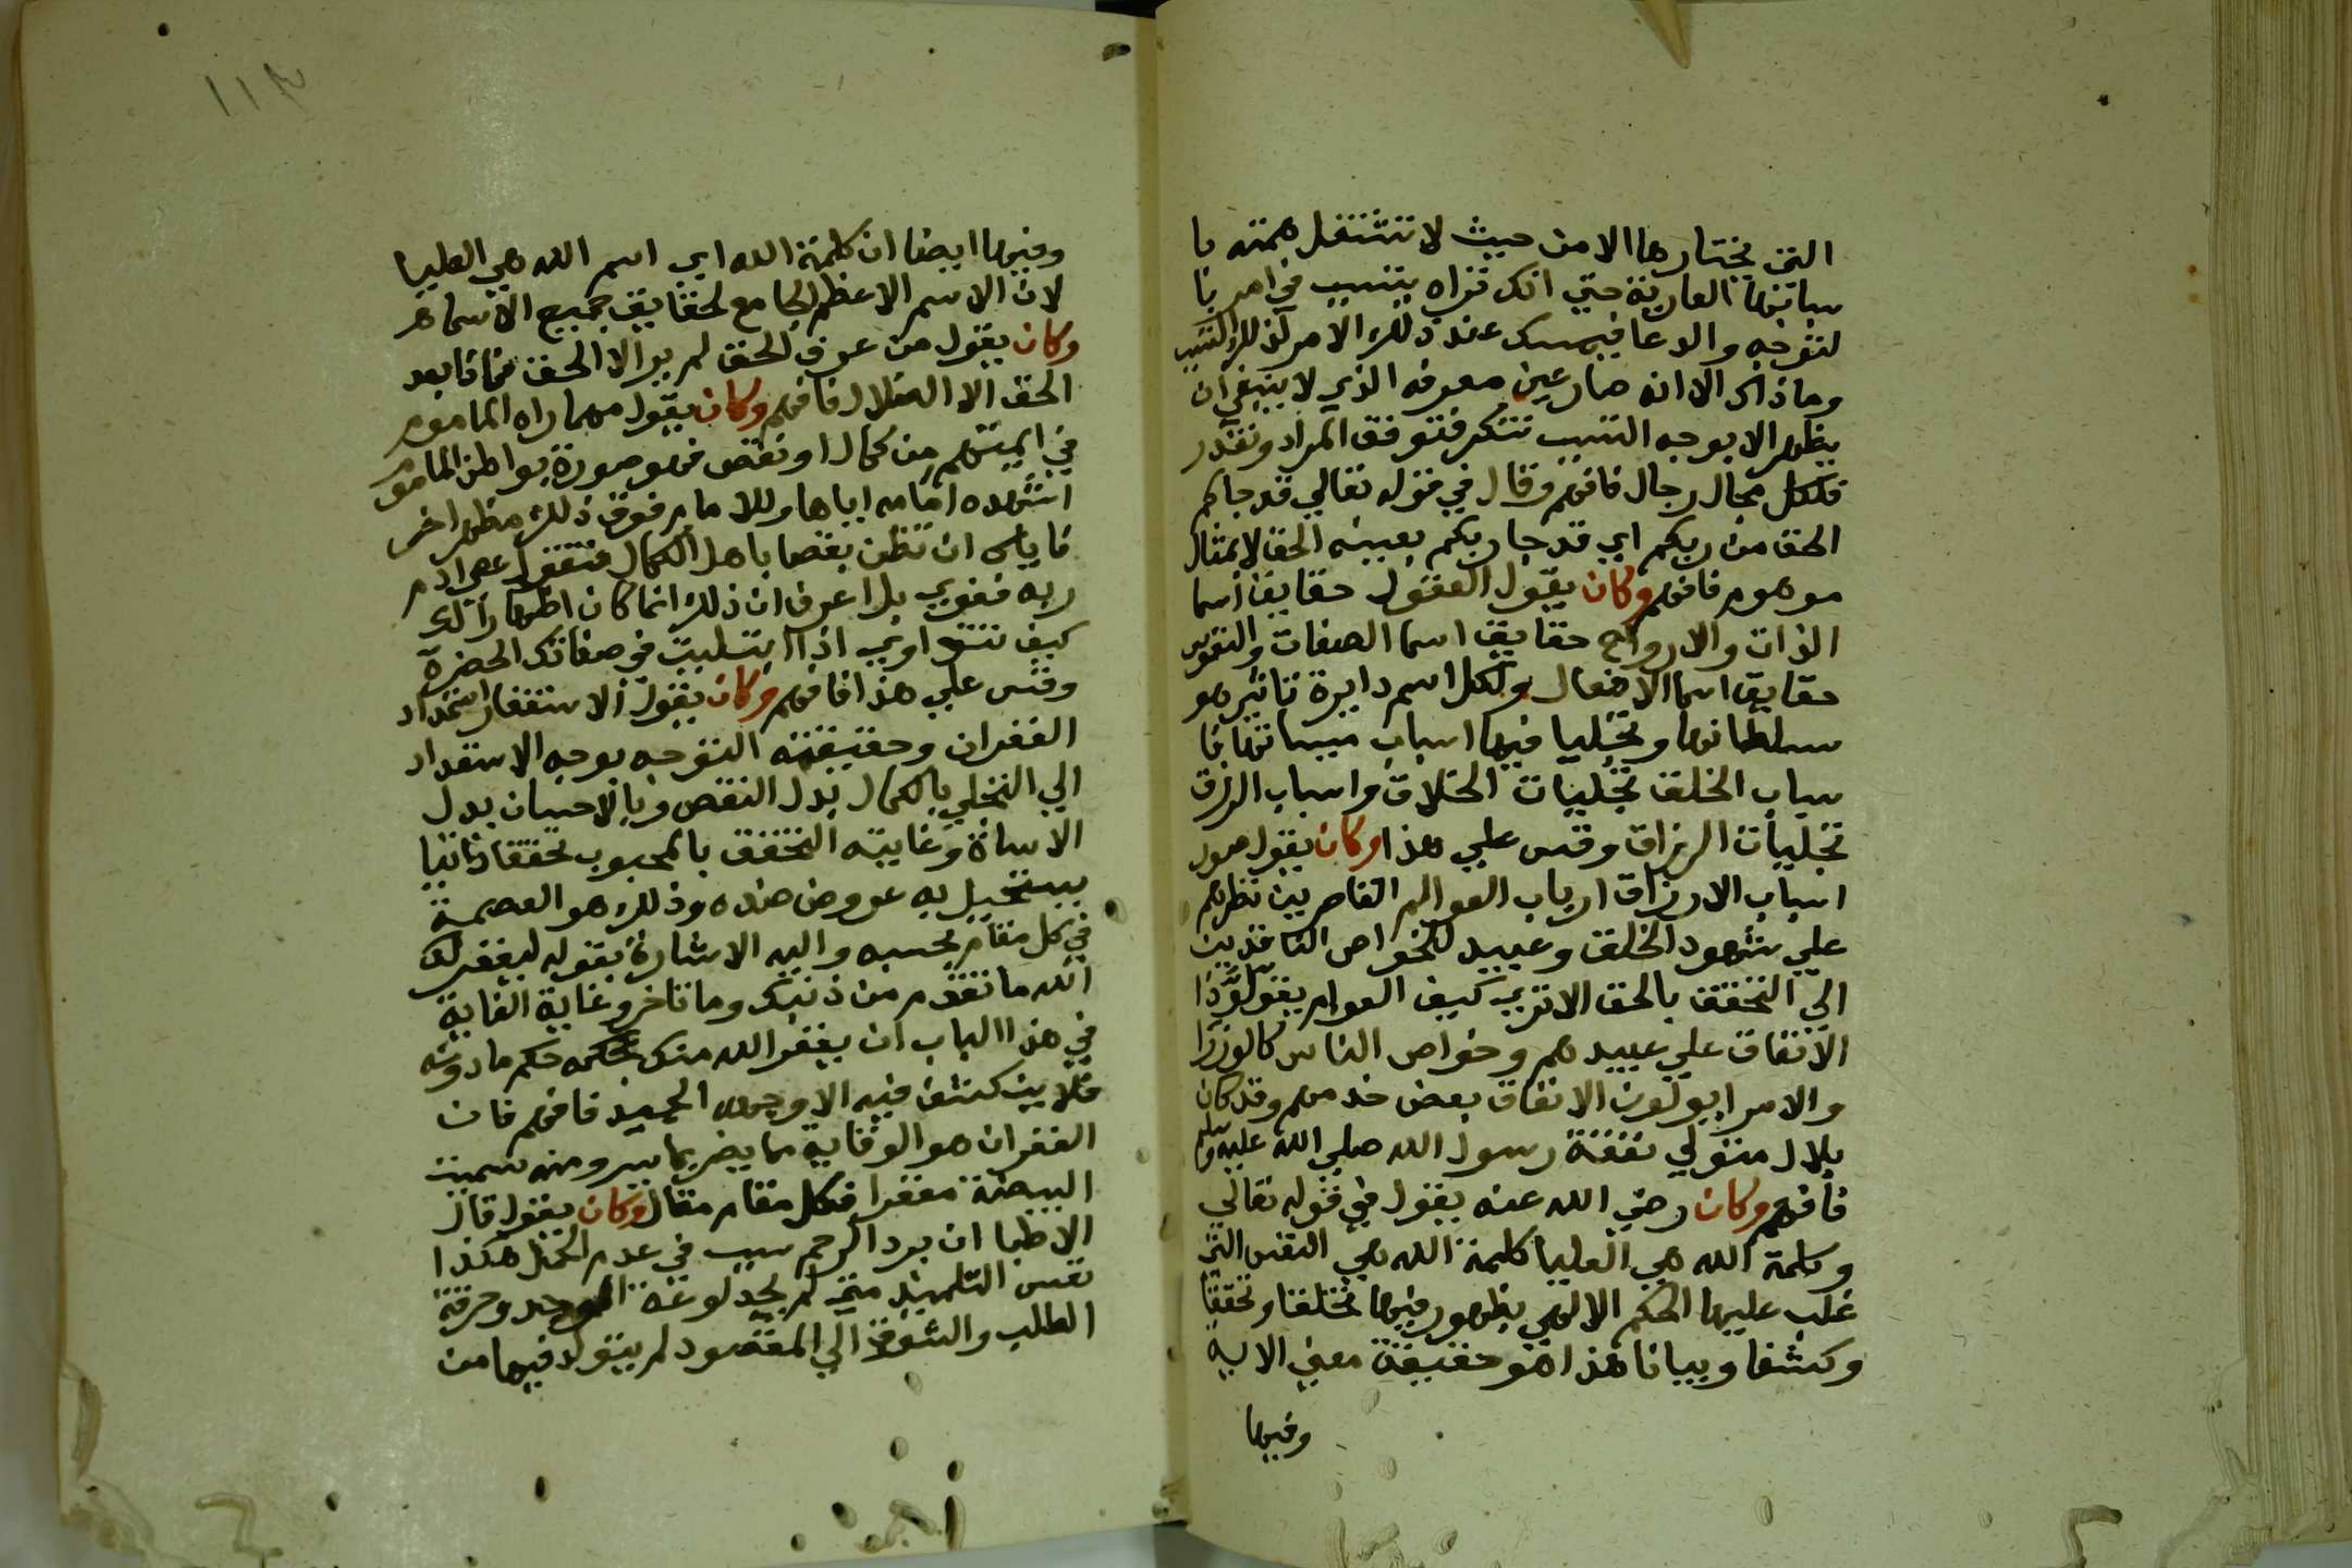 التي يختارها الا من حيث لا تشتغل همته با
سبابها العارية حتي انك تراه يتسبب في امر با
لتوجه والدعا فيمسك عند ذلك الامر لذلك التسبب
وما ذاك الا انه صار عين معرفه الذي لا ينبغي ان
يظهر الا بوجه التسبب تنكر فتوفق المراد وتقدر
فلكل مجال رجال فافهم وقال في قوله تعالي قد جاكم
الحق من ربكم اي قد جا ربكم بعينه الحق لا بمثال
موهوم فافهم وكان يقول العقول حقايق اسما
الذات والارواح حقايق اسما الصفات والنفوس
حقايق اسما الافعال ولكل اسم دايرة تاثير هو
سلطانها وتجليا فيها اسباب مسبباتها فا
سباب الخلق تجليات الخلاق واسباب الرزق
تجليات الرزاق وقس علي هذا وكان يقول صور
اسباب الارزاق ارباب العوالم القاصرين نظرهم
علي شهود الخلق وعبيد للخواص النافذين
الي التحقق بالحق الا تري كيف العوام يقولون ذا
الانفاق علي عبيدهم وخواص الناس كالوزرا
والامرا يولون الانفاق بعض خدمهم وقد كان
بلال متولي نفقة رسول الله صلي الله عليه وسلم
فافهم وكان رضي الله عنه يقول في قوله تعالي
وكلمة الله هي العليا كلمة الله هي النفس التي
غلب عليها الحكم الالهي بظهور فيها تخلقا وتحققا
وكشفا وبيانا هذا هو حقيقة معني الاية
وفيها
وفيها ايضا ان كلمة الله اي اسم الله هي العليا
لان الاسم الاعظم الجامع لحقايق جميع الاسما هو
وكان يقول من عرف الحق لم ير الا الحق فماذا بعد
الحق الا الضلال فافهم وكان يقول مهما راه الماموم
في ايمتهم من كمال او نقص فهو صورة بواطن المامو
اشهده امامه اياها وللامام فوق ذلك مظهر اخر
فاياك ان تظن نقصا باهل الكمال فتقول عصي ادم
ربه فغوي بل اعرف ان ذلك انما كان اظهارا لك
كيف تتداوي اذا ابتليت في صفاتك الحضرة
وقس علي هذا فافهم وكان يقول الاستغفار استمداد
الغفران وحقيقته التوجه بوجه الاستعداد
الي التجلي بالكمال بدل النقص وبالاحسان بدل
الاساة وغايته التحقق بالمحبوب تحققا ذاتيا
يستحيل به عروض ضده وذلك هو العصمة
في كل مقام بحسبه واليه الاشارة بقوله ليغفر لك
الله ما تقدم من ذنبك وما تاخر وغاية الغاية
في هذا الباب ان يغفر الله منك بحكمه حكم ما دونه
فلا ينكشف فيه الا وجهه الحميد فافهم فان
الغفران هو الوقاية مما يضر بما يسر ومنه سميت
البيضة مغفرا فلكل مقام مقال وكان يقول قال
الاطبا ان برد الرحم سبب في عدم الحمل هكذا
نفس التلميذ متي لم يجد لوعة الوجد وحرقة
الطلب والشوق الي المقصود لم يتولد فيها من